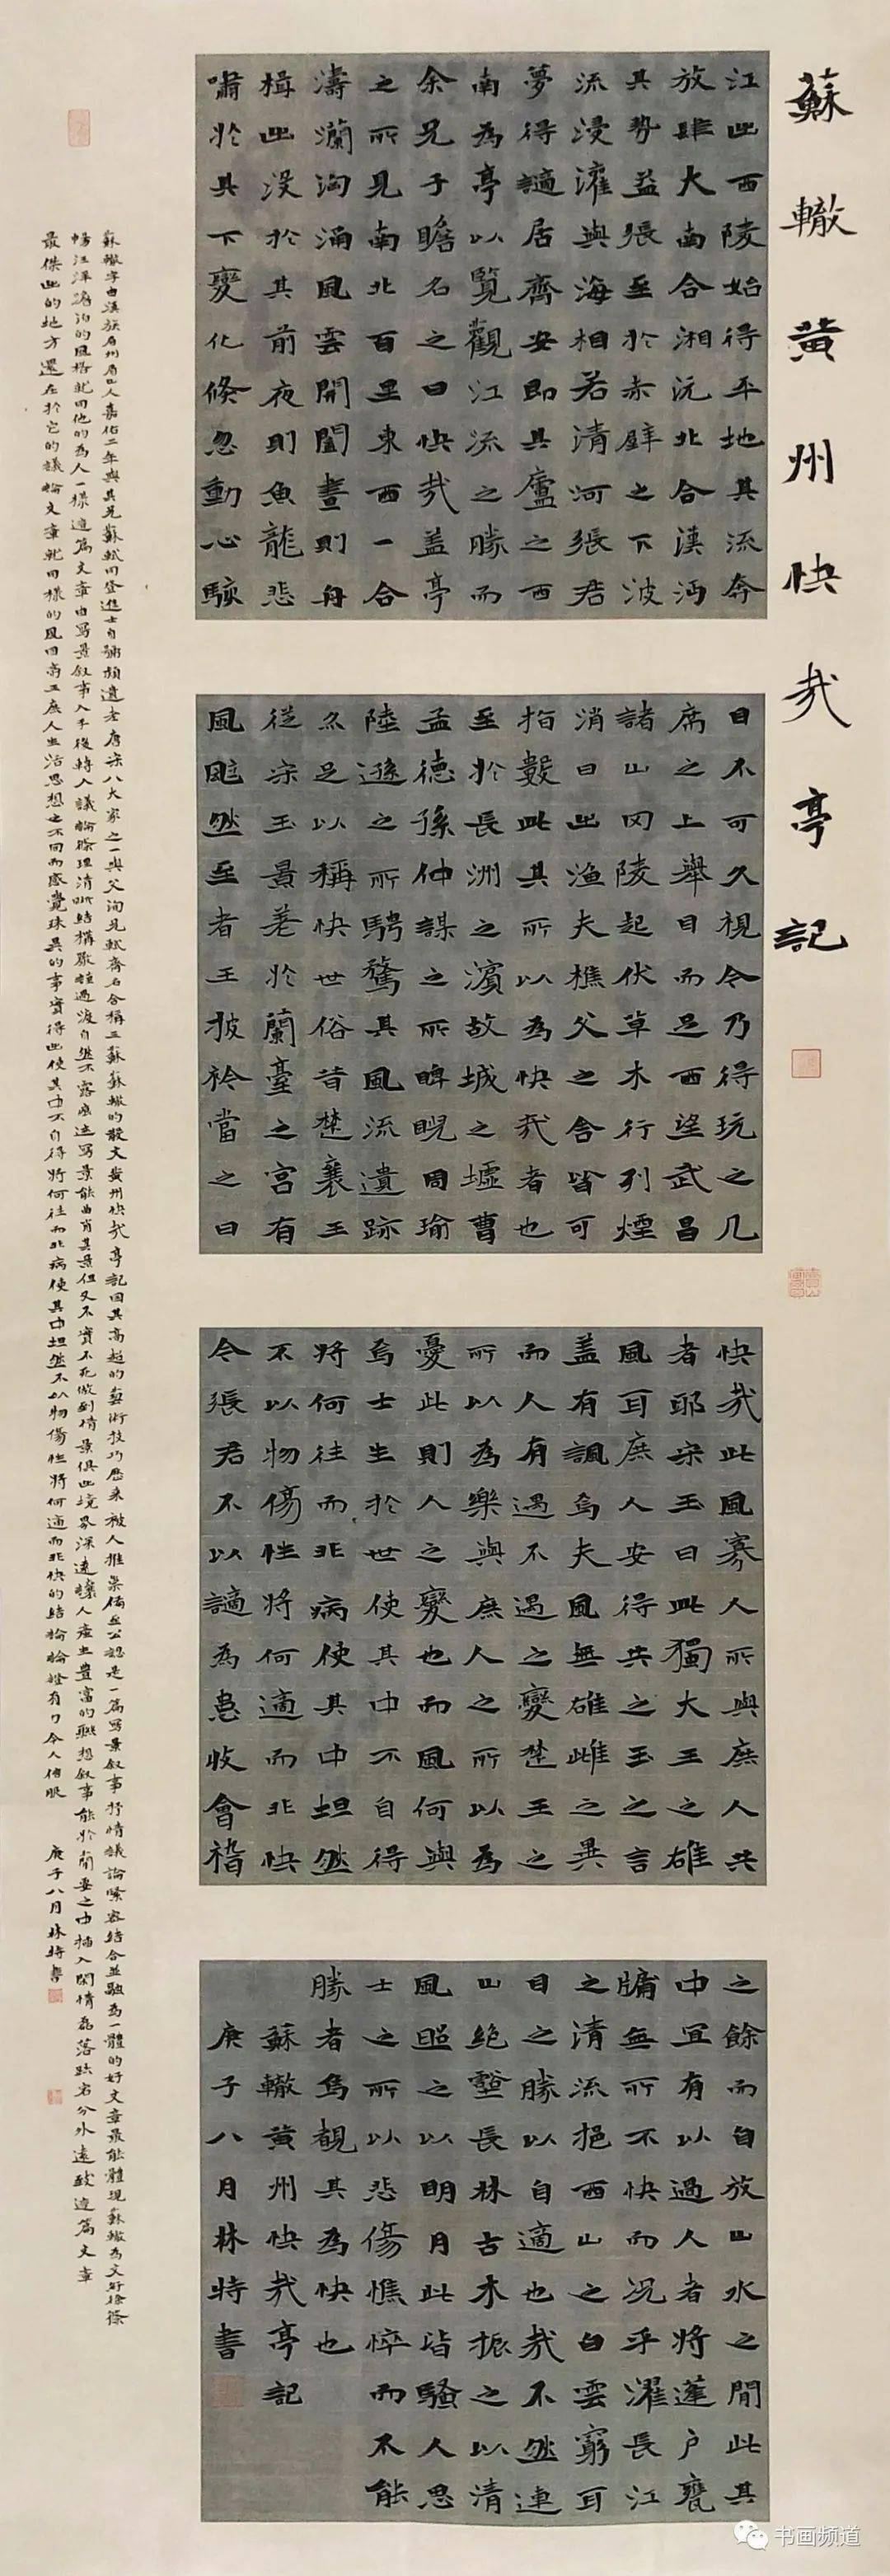 蘇轍黃州快哉亭記
江出西陵始得平地其流奔
放肆大南合湘沅北合漢沔
其勢益張至於赤壁之下波
流浸灌與海相若清河張君
夢得謫居齊安即其廬之西
南為亭以覽觀江流之勝而
余兄子瞻名之曰快哉蓋亭
之所見南北百里東西一合
濤瀾洶涌風雲開闔晝則舟
楫出沒於其前夜則魚龍悲
嘯於其下變化倏忽動心駭
目不可久視今乃得玩之几
席之上舉目而足西望武昌
諸山冈陵起伏草木行列煙
消日出漁夫樵父之舍皆可
指數此其所以為快哉者也
至於長洲之濱故城之墟曹
孟德孫仲謀之所睥睨周瑜
陸遜之所騁騖其風流遺跡
亦足以稱快世俗昔楚襄王
從宋玉景差於蘭臺之宮有
風颯然至者王披衿當之曰
快哉此風寡人所與庶人共
者耶宋玉曰此獨大王之雄
風耳庶人安得共之玉之言
蓋有諷焉夫風無雄雌之異
而人有遇不遇之變楚王之
所以為樂與庶人之所以為
憂此則人之變也而風何與
焉士生於世使其中不自得
將何往而非病使其中坦然
不以物傷性將何適而非快
今張君不以謫為患收會稽
之餘而自放山水之間此其
中宜有以過人者將蓬戶甕
牖無所不快而況乎濯長江
之清流挹西山之白雲窮耳
目之勝以自適也哉不然連
山絕壑長林古木振之以清
風照之以明月此皆騷人思
士之所以悲傷憔悴而不能
勝者烏覩其為快也
蘇轍黃州快哉亭記
庚子八月林特書
蘇轍字由漢族眉州眉山人嘉佑二年與其兄蘇軾同登進士自號潁濱遺老唐宋八大家之一與父洵兄軾齊名合稱三蘇蘇轍的散文黃州快哉亭記因其高超的藝術技巧歷來被人推崇備至公認是一篇寫景敘事抒情議論緊密結合並融為一體的好文章最能體現蘇轍為文紆徐條
暢汪洋澹泊的風格就同他的為人一樣這篇文章由寫景敘事入手後轉入議論條理清晰結構嚴謹過渡自然不露痕迹寫景能曲肖其景但又不實不死做到情景俱出境界深遠讓人產生豐富的聯想敘事能於簡要之中插入閑情磊落跌宕分外遠致這篇文章
最傑出的地方還在於它的議論文章就同樣的風因高王庶人生活思想之不同而感覺殊異的事實得出使其中不自得將何往而非病使其中坦然不以物傷性將何適而非快的結論論證有力令人信服 庚子八月林特書
书画频道